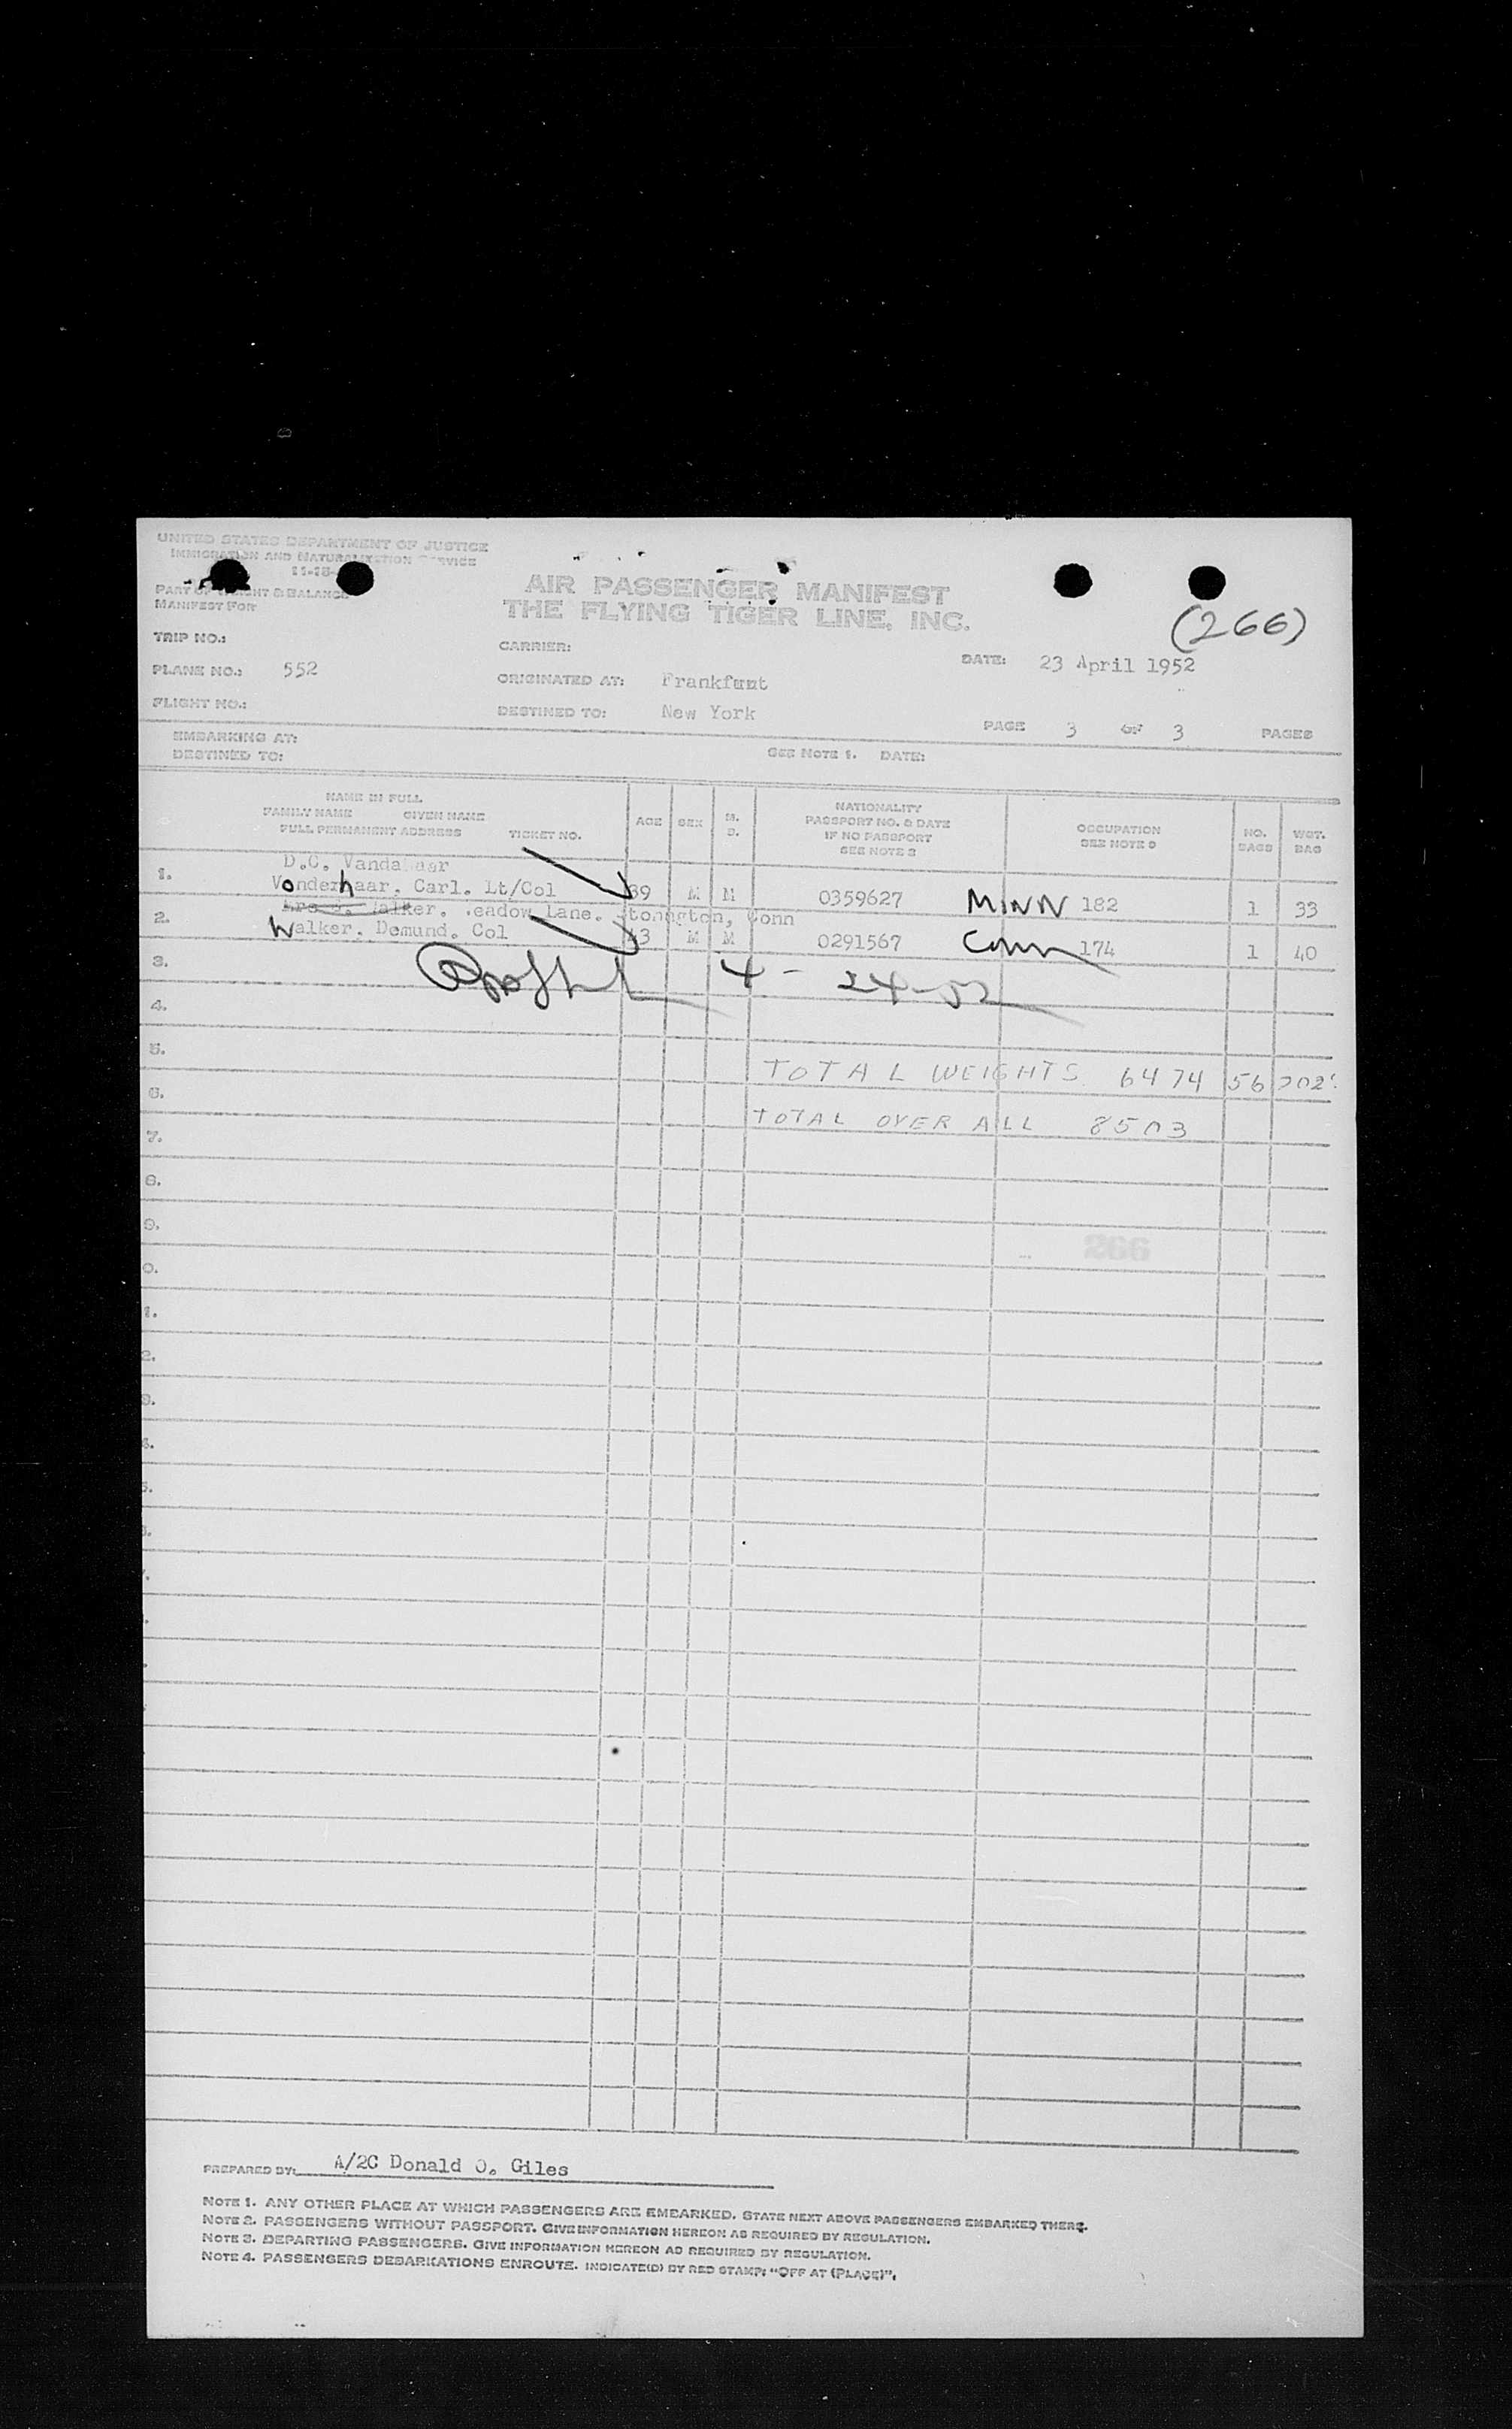 UNITED STATES DEPARTMENT OF JUSTICE
IMMIGRATION AND NATURALIZATION SERVICE
11-18-
PART OF WEIGHT & BALANCE
MANIFEST FOR
AIR PASSENGER MANIFEST
THE FLYING TIGER LINE, INC.
(266)
TRIP NO.:
CARRIER:
DATE: 23 April 1952
PLANE NO.: 552
ORIGINATED AT: Frankfurt
FLIGHT NO.:
DESTINED TO: New York
PAGE 3 OF 3 PAGES
EMBARKING AT:
DESTINED TO:
SEE NOTE 1. DATE:
NAME IN FULL
FAMILY NAME GIVEN NAME
FULL PERMANENT ADDRESS TICKET NO.
AGE SEX M. S.
NATIONALITY
PASSPORT NO. & DATE
IF NO PASSPORT
SEE NOTE 2
OCCUPATION
SEE NOTE 3
NO. BAGS
WGT. BAG
D.C.
1. Vonderhaar, Carl. Lt/Col 39 M M 0359627 MINN 182 1 33
Walker. Meadow Lane. Stonngton, Conn
2. Walker. Demund. Col 43 M M 0291567 Conn 174 1 40
3. 4-24-52
4.
5.
TOTAL WEIGHTS 6474 56
6.
TOTAL OVER ALL 8503
7.
8.
9.
266
0.
1.
2.
3.
4.
5.
PREPARED BY: A/2C Donald O. Giles
NOTE 1. ANY OTHER PLACE AT WHICH PASSENGERS ARE EMBARKED. STATE NEXT ABOVE PASSENGERS EMBARKED THERE.
NOTE 2. PASSENGERS WITHOUT PASSPORT. GIVE INFORMATION HEREON AS REQUIRED BY REGULATION.
NOTE 3. DEPARTING PASSENGERS. GIVE INFORMATION HEREON AS REQUIRED BY REGULATION.
NOTE 4. PASSENGERS DEBARKATIONS ENROUTE. INDICATE(D) BY RED STAMP: "OFF AT (PLACE)".